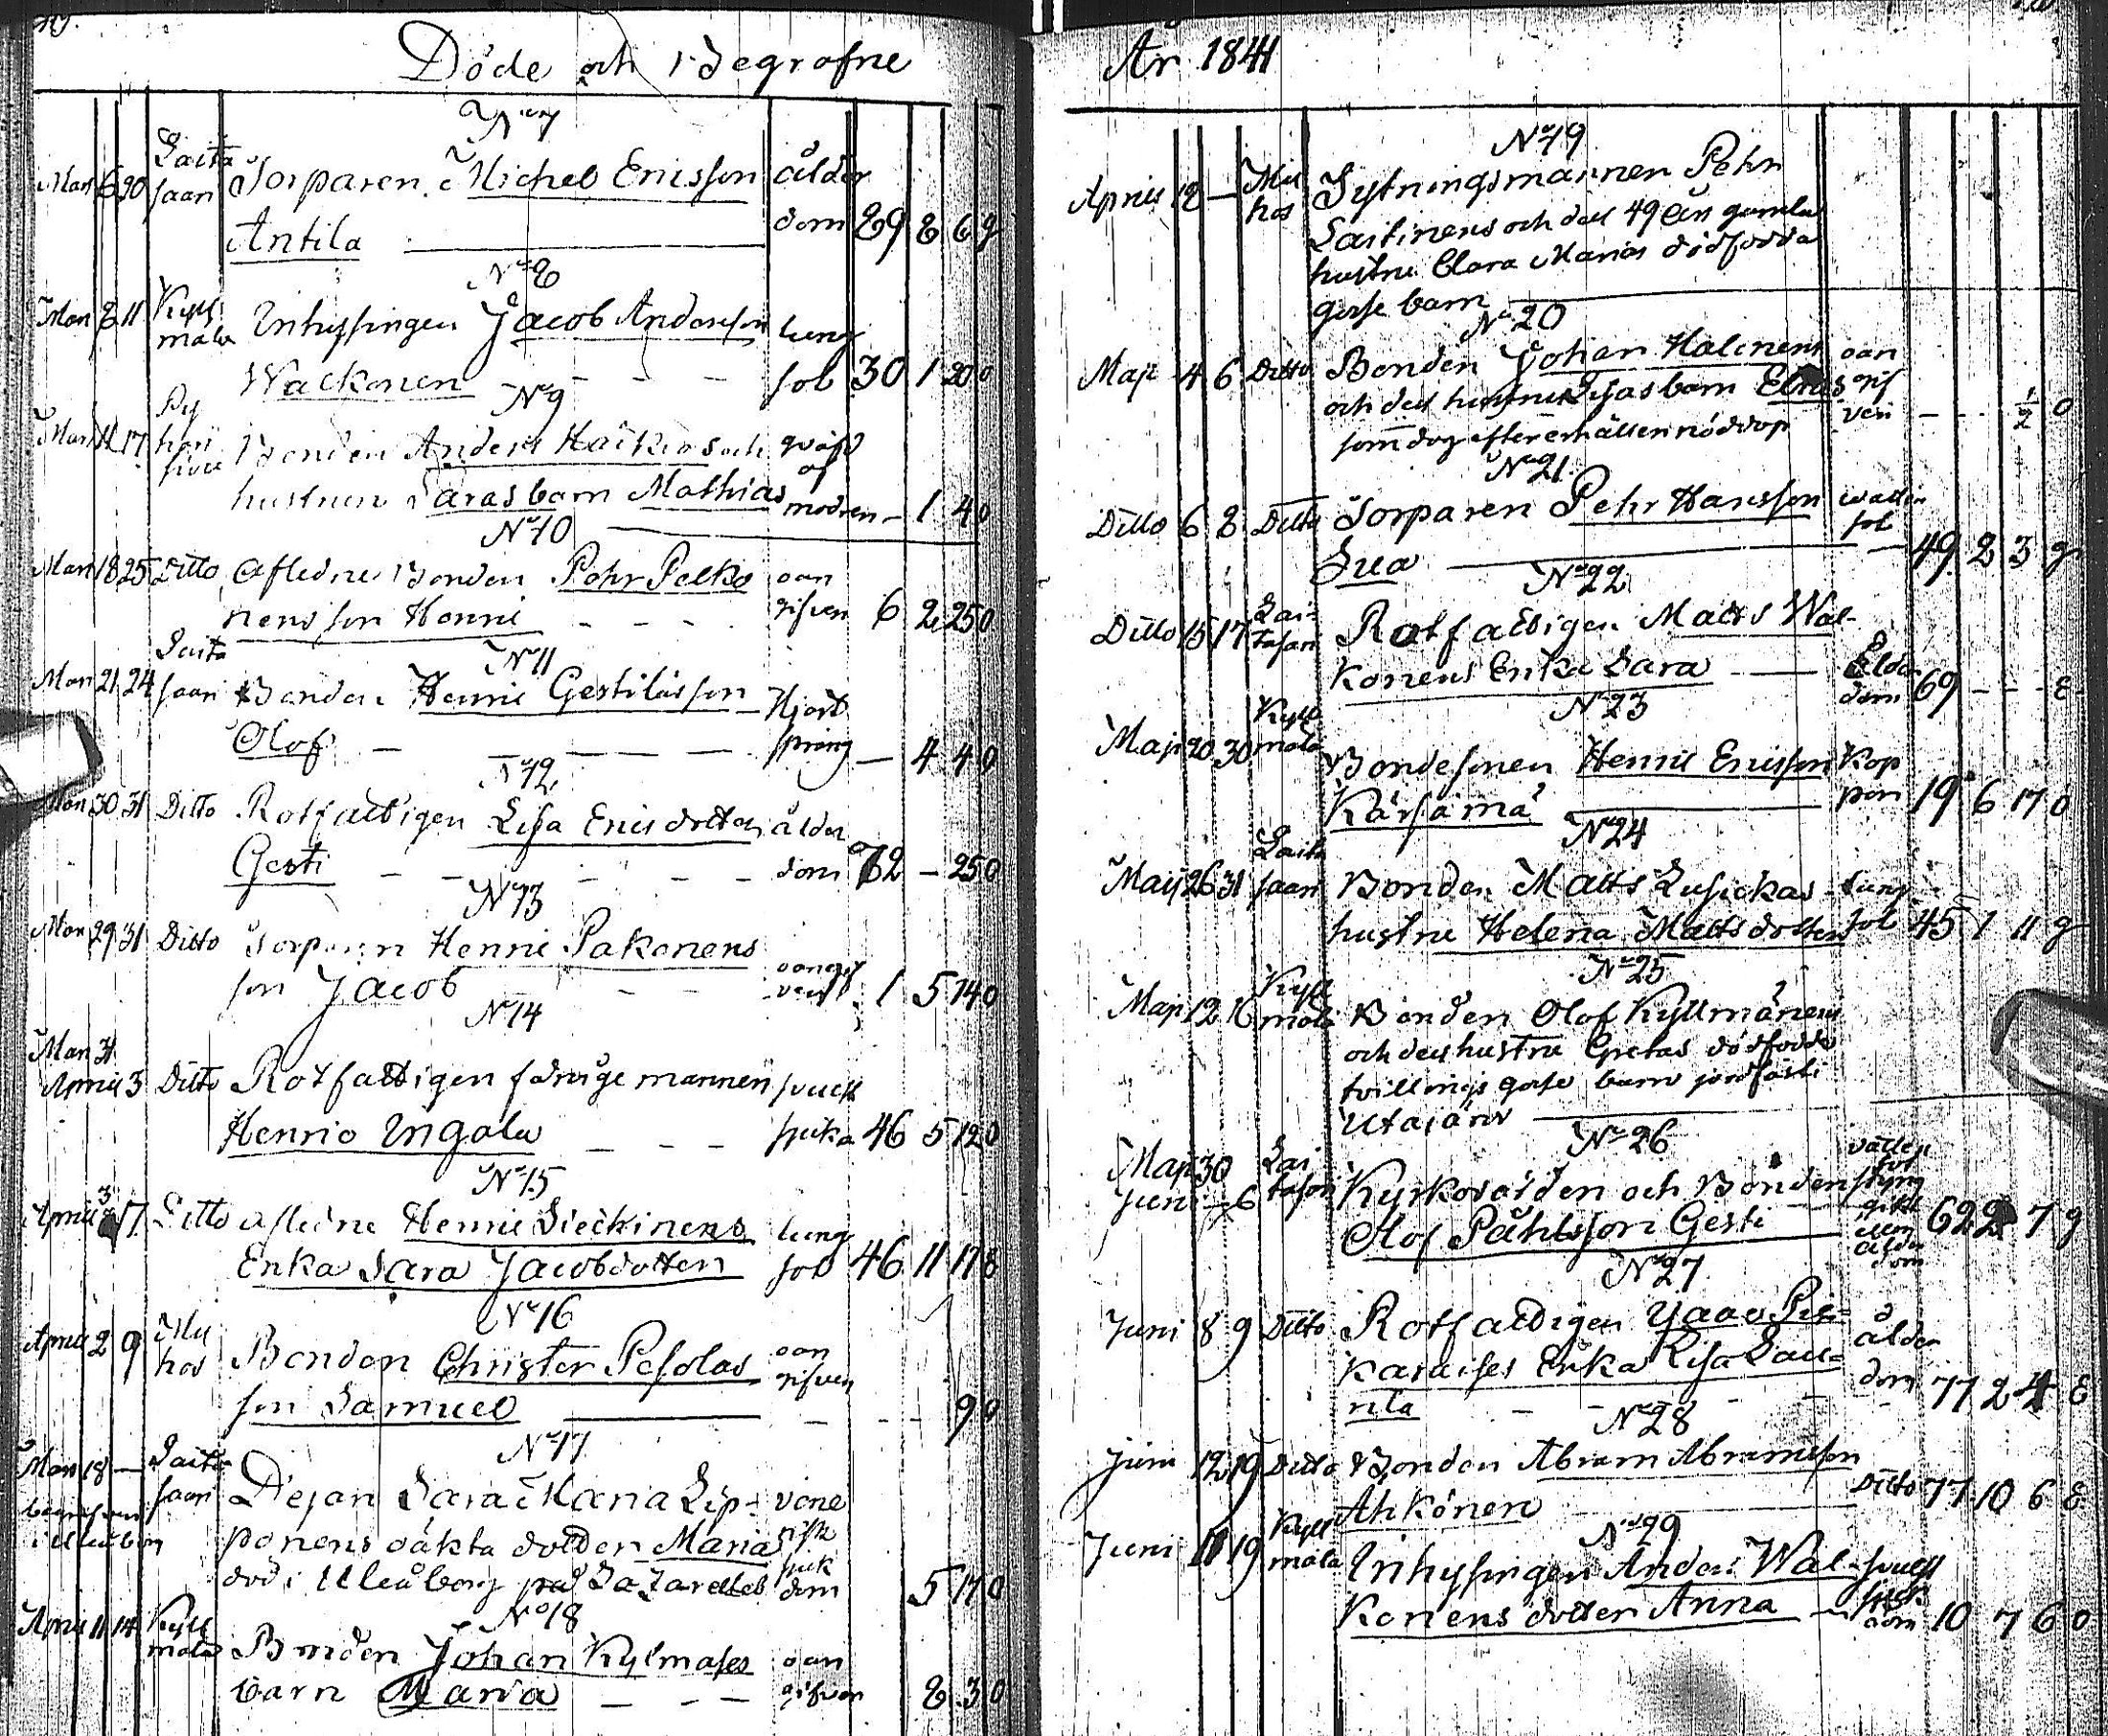 Döde och Begrafne
No 7
Mars 6 20 Saita
saari Torparen Michel Ericsson ålder
Antila dom 89 8 6 g
No 8
Mars 8 11 Kyll
mälä Inhysingen Jacob Andersson lung
Wäckonen sot 30 1 20 0
No 9
Mars 11 17 Bonden Anders Haikios och qväfd
af
hustrun Saras barn Mathias modren – 1 4 0
No 10
Mars 18 25 Ditto Afledne Bonden Pehr Pelko oan
nens son Henric gifven 6 2 25 0
No 11
Saita
Mars 21 24 saari Bonden Henric Gestilässon Hjert
Olof språng – 4 4 0
No 12
Mars 30 31 Ditto Rotfattigen Lisa Ericsdotter ålder
Gesti dom 72 – 25 0
No 13
Mars 29 31 Ditto Torparen Henric Pakonens
son Jacob oangif
vest 1 5 14 0
No 14
Mars 31
April 3 Ditto Rotfattigen f drägemannen svull
Henric Ingalu sjuka 46 5 12 0
No 15
April 3 17 Ditto aflidne Henric Sieckinens lung
Enka Sara Jacobsdotter sot 46 11 17 8
No 16
April 2 9 Mu
hos Bonden Christer Pesolas oan
gifven
son Samuel – – 9 0
No 17
Mars 18 – Saita
saari Dejan Sara Maria Lip= vene
begrafven
i Uleåborg ponens oäkta dotter Maria risk
död i Uleåborg på Lazarettet sjuk
dom 5 17 0
No 18
April 11 14 Kyll
mälä Bonden Johan Kylmäses oan
barn Maria gifven 8 3 0
År 1841
No 19
April 12 – Mu
hos Sytningsmannen Pehr
Laitinens och dess 49 år gamla
hustru Clara Marias dödfödda
gosse barn
No 20
Maji 4 6 Ditto Bonden Johan Halonens oan
och dess hustrus Lisas barn Elias gif
ven – – ½ 0
som dog efter erhållen nöddop
No 21
Ditto 6 8 Ditto Torparen Pehr Hansson watten
sot
Sua 49 2 3 g
No 22
Ditto 15 17 Lai-
tasari Rotfattigen Matts Wal-
konens Enka Sara Ålder
dom 69 – – – 8
No 23
Maji 20 30 Kyll
mälä Bondesonen Henric Ericsson Kop
Kärsämä por 19 6 17 0
No 24
Maij 26 31 Saita
saari Bonden Matts Lusickas lung
hustru Helena Mattsdotter sot 45 1 11 g
No 25
Maji 12 16 Kyll
mälä Bonden Olof Kyllmänens
och dess hustru Gretas dödfödde
tvillings gosse barn jordfäst i
Utajärvi
No 26
Maji 30
Juni – 6 Lai
tasari Kyrkovärden och Bonden
Olof Påhlsson Gesti
vatten
sot
styng
gikt
eller
ålder
dom 62 2 7 g
No 27
Juni 8 9 Ditto Rotfattigen
Karaises Enka Lisa Lau=
rila ålder
dom 77 2 4 8
No 28
Juni 12 19 Ditto Bonden Abram Abramsson
Ahkönen Ditto 77 10 6 8
No 29
Juni 11 19 Kyll
mälä Inhysingen Anders Wal= svull
Konens dotter Anna sjuk
dom 10 7 6 0